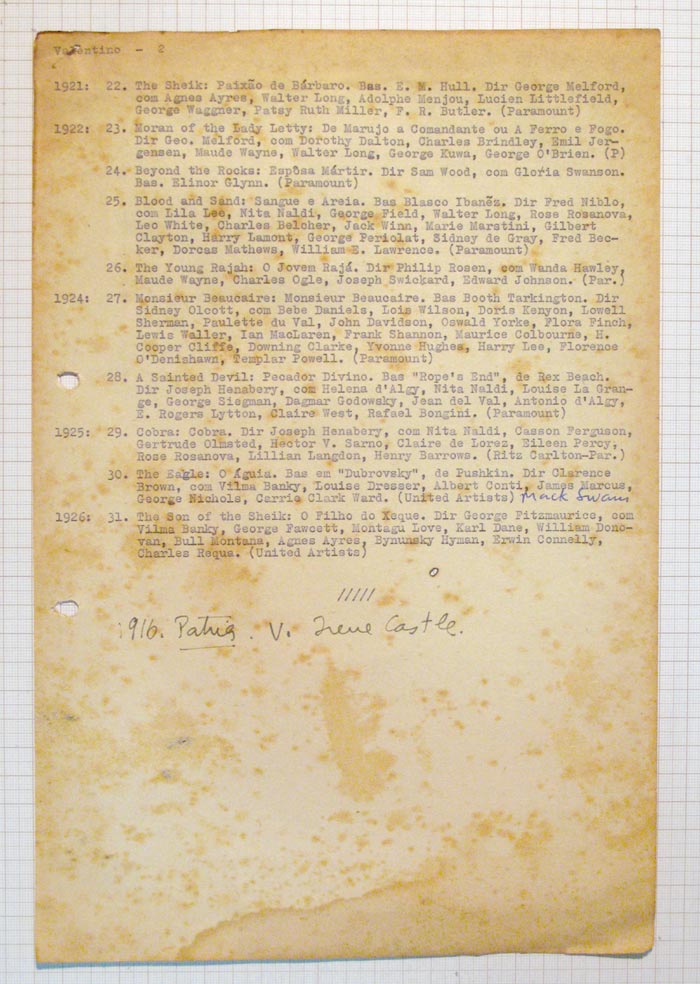 Valentino - 2
1921: 22. The Sheik: Paixão de Bárbaro. Bas. E. M. Hull. Dir George Melford,
com Agnes Ayres, Walter Long, Adolphe Menjou, Lucien Littlefield,
George Waggner, Patsy Ruth Miller, F. R. Butler. (Paramount)
1922: 23. Moran of the Lady Letty: De Marujo a Comandante ou A Ferro e Fogo.
Dir Geo. Melford, com Dorothy Dalton, Charles Brindley, Emil Jer-
gensen, Maude Wayne, Walter Long, George Kuwa, George O'Brien. (P)
24. Beyond the Rocks: Espôsa Mártir. Dir Sam Wood, com Gloria Swanson.
Bas. Elinor Glynn. (Paramount)
25. Blood and Sand: Sangue e Areia. Bas Blasco Ibanẽz. Dir Fred Niblo,
com Lila Lee, Nita Naldi, George Field, Walter Long, Rose Rosanova,
Leo White, Charles Belcher, Jack Winn, Marie Marstini, Gilbert
Clayton, Harry Lamont, George Periolat, Sidney de Gray, Fred Bec-
ker, Dorcas Mathews, William E. Lawrence. (Paramount)
26. The Young Rajah: O Jovem Rajá. Dir Philip Rosen, com Wanda Hawley,
Maude Wayne, Charles Ogle, Joseph Swickard, Edward Johnson. (Par.)
1924: 27. Monsieur Beaucaire: Monsieur Beaucaire. Bas Booth Tarkington. Dir
Sidney Olcott, com Bebe Daniels, Lois Wilson, Doris Kenyon, Lowell
Sherman, Paulette du Val, John Davidson, Oswald Yorke, Flora Finch,
Lewis Waller, Ian MacLaren, Frank Shannon, Maurice Colbourne, H.
Cooper Cliffe, Downing Clarke, Yvonne Hughes, Harry Lee, Florence
O'Denishawn, Templar Powell. (Paramount)
28. A Sainted Devil: Pecador Divino. Bas "Rope's End", de Rex Beach.
Dir Joseph Henabery, com Helena d'Algy, Nita Naldi, Louise La Gran-
ge, George Siegman, Dagmar Godowsky, Jean del Val, Antonio d'Algy,
E. Rogers Lytton, Claire West, Rafael Bongini. (Paramount)
1925: 29. Cobra: Cobra. Dir Joseph Henabery, com Nita Naldi, Casson Ferguson,
Gertrude Olmsted, Hector V. Sarno, Claire de Lorez, Eileen Percy,
Rose Rosanova, Lillian Langdon, Henry Barrows. (Ritz Carlton-Par.)
30. The Eagle: O Águia. Bas em "Dubrovsky", de Pushkin. Dir Clarence
Brown, com Vilma Banky, Louise Dresser, Albert Conti, James Marcus,
George Nichols, Carrie Clark Ward. (United Artists) Mack Swain
1926: 31. The Son of the Sheik: O Filho do Xeque. Dir George Fitzmaurice, com
Vilma Banky, George Fawcett, Montagu Love, Karl Dane, William Dono-
van, Bull Montana, Agnes Ayres, Bynunsky Hyman, Erwin Connelly,
Charles Requa. (United Artists)
/////
1916. Patria. V. Irene Castle.